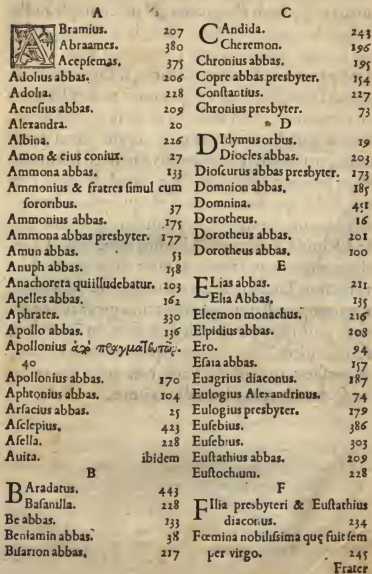 A
ABramius. 207
Abraames. 380
Acepsemas. 375
Adolius abbas. 206
Adolia. 228
Aenesius abbas. 209
Alexandra. 20
Albina. 226
Amon & eius coniux. 27
Ammona abbas. 133
Ammonius & fratres simul cum
sororibus. 37
Ammonius abbas. 175
Ammona abbas presbyter. 177
Amun abbas. 53
Anuph abbas. 158
Anachoreta qui illudebatur. 203
Apelles abbas. 162
Aphrates. 330
Apollo abbas. 136
Apollonius ἀπὸ πραγματευτῶν.
40
Apollonius abbas. 170
Aphtonius abbas. 104
Arsacius abbas. 25
Asclepius. 423
Asella. 228
Auita. ibidem
B
BAradatus. 443
Basanilla. 228
Be abbas. 133
Beniamin abbas. 38
Bisarion abbas. 217
C
CAndida. 243
Cheremon. 196
Chronius abbas. 195
Copre abbas presbyter. 154
Constantius. 227
Chronius presbyter. 73
D
DIdymus orbus. 19
Diocles abbas. 203
Dioscurus abbas presbyter. 173
Domnion abbas. 185
Domnina. 451
Dorotheus. 16
Dorotheus abbas. 201
Dorotheus abbas. 100
E
ELias abbas. 211
Elia Abbas. 135
Eleemon monachus. 216
Elpidius abbas. 208
Ero. 94
Esaia abbas. 157
Euagrius diaconus. 187
Eulogius Alexandrinus. 74
Eulogius presbyter. 179
Eusebius. 386
Eusebius. 303
Eustathius abbas. 209
Eustochium. 228
F
FIlia presbyteri & Eustathius
diaconus. 234
Fœmina nobilissima quę fuit sem
per virgo. 245
Frater